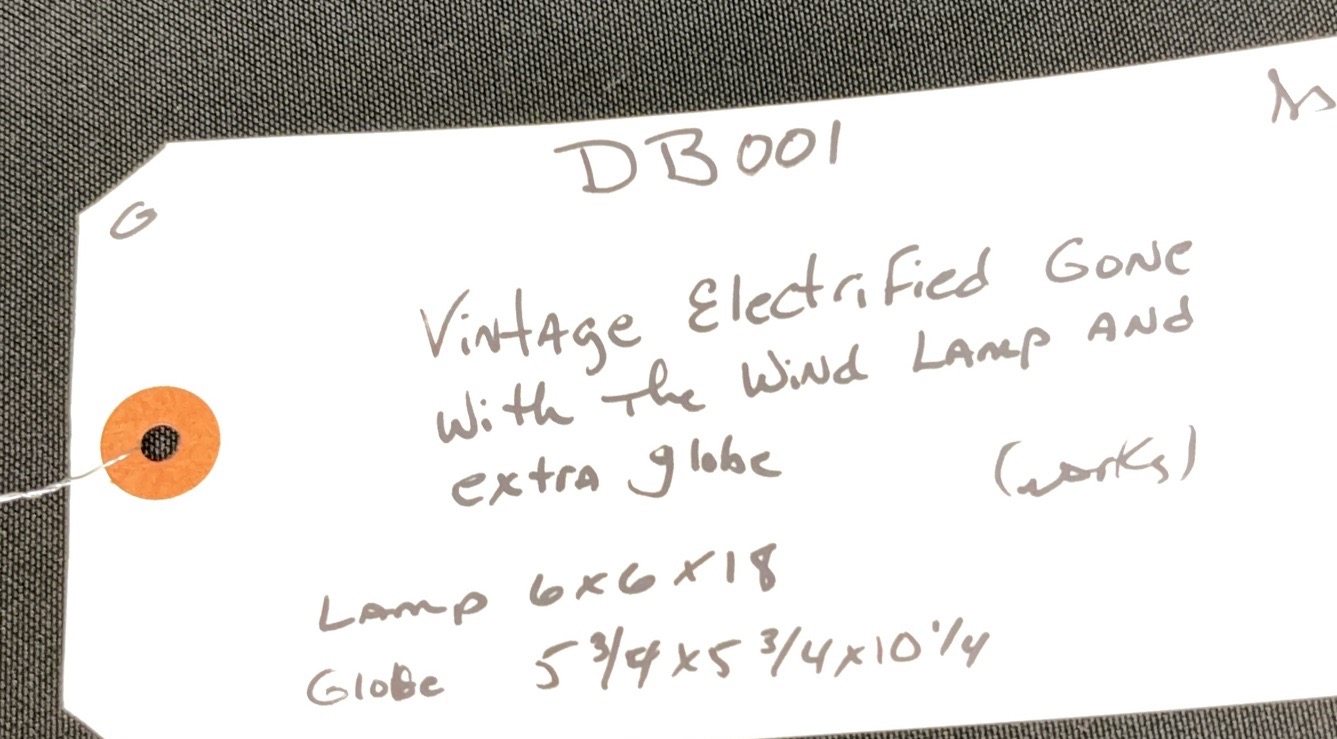 DB001
G
Vintage Electrified Gone
With The Wind Lamp And
extra globe (works)
Lamp 6x6x18
Globe 5 3/4 x 5 3/4 x 10 1/4